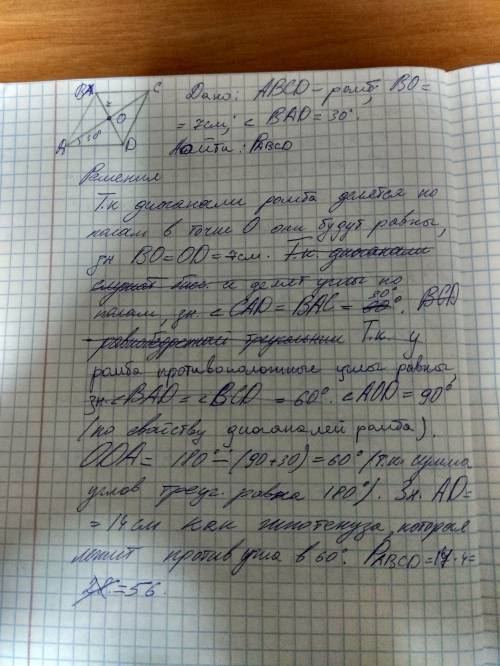 B C
Дано: ABCD - ромб; BO=
O
= 7см; < BAD = 30°.
A 30° D
Найти: PABCD
Решение
Т.к диоганали ромба делятся по
полам в точке O они будут равны,
зн BO=OD=7см. Т.к. диоганали
и делят углы по
полам, зн. <CAD = BAC = 30°. BCD
равносторонний треугольник Т.к. у
ромба противоположные углы равны,
зн <BAD = <BCD = 60°. <AOD = 90°
(по свойству диоганалей ромба).
ODA = 180° - (90+30) = 60° (т.к. сумма
углов треуг. равна 180°). Зн. AD=
= 14см как гипотенуза, которая
лежит против угла в 60°. PABCD = 14·4=
=56.